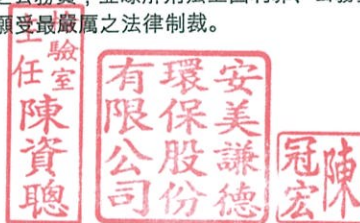 願受最嚴厲之法律制裁。
檢驗室
主任
陳資聰
安美謙德
環保股份
有限公司
陳
冠宏